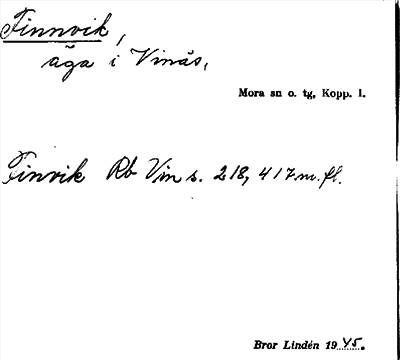 Finnvik,
äga i Vinäs,
Mora sn o. tg, Kopp. l.
Finvik Rb Vin s. 218, 417 m. fl.
Bror Lindén 1945.